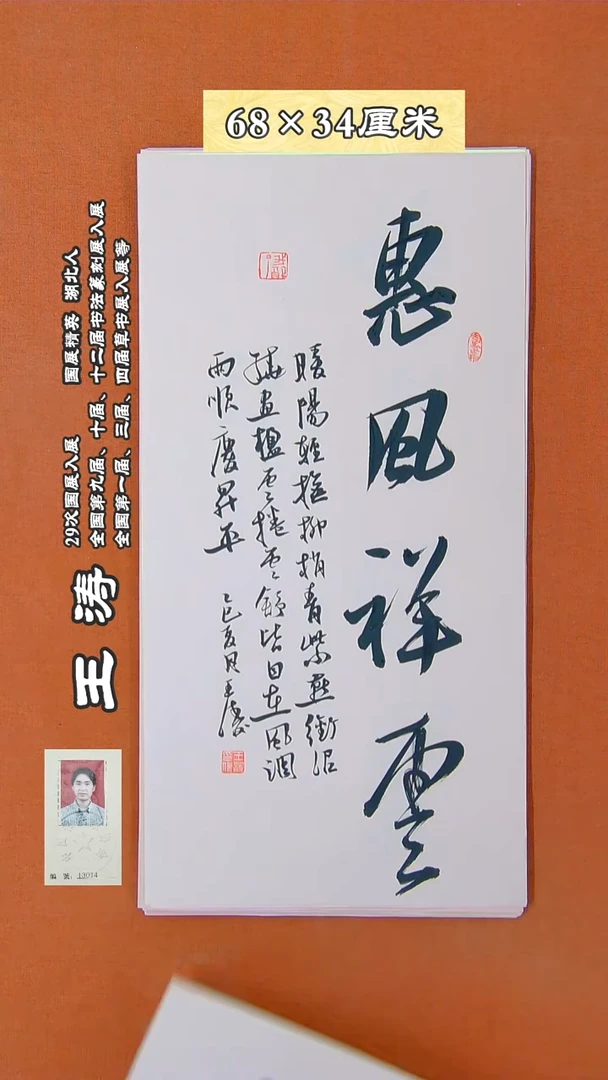 68×34厘米
惠風祥雲
暖陽輕撫柳梢青紫燕銜泥
繞畫楹雲捲雲舒皆自在風調
雨順慶昇平 乙巳夏月王濤
王涛
29次国展入展 国展精英 湖北人
全国第九届、十届、十二届书法篆刻展入展
全国第一届、三届、四届草书展入展等
编 号：13014